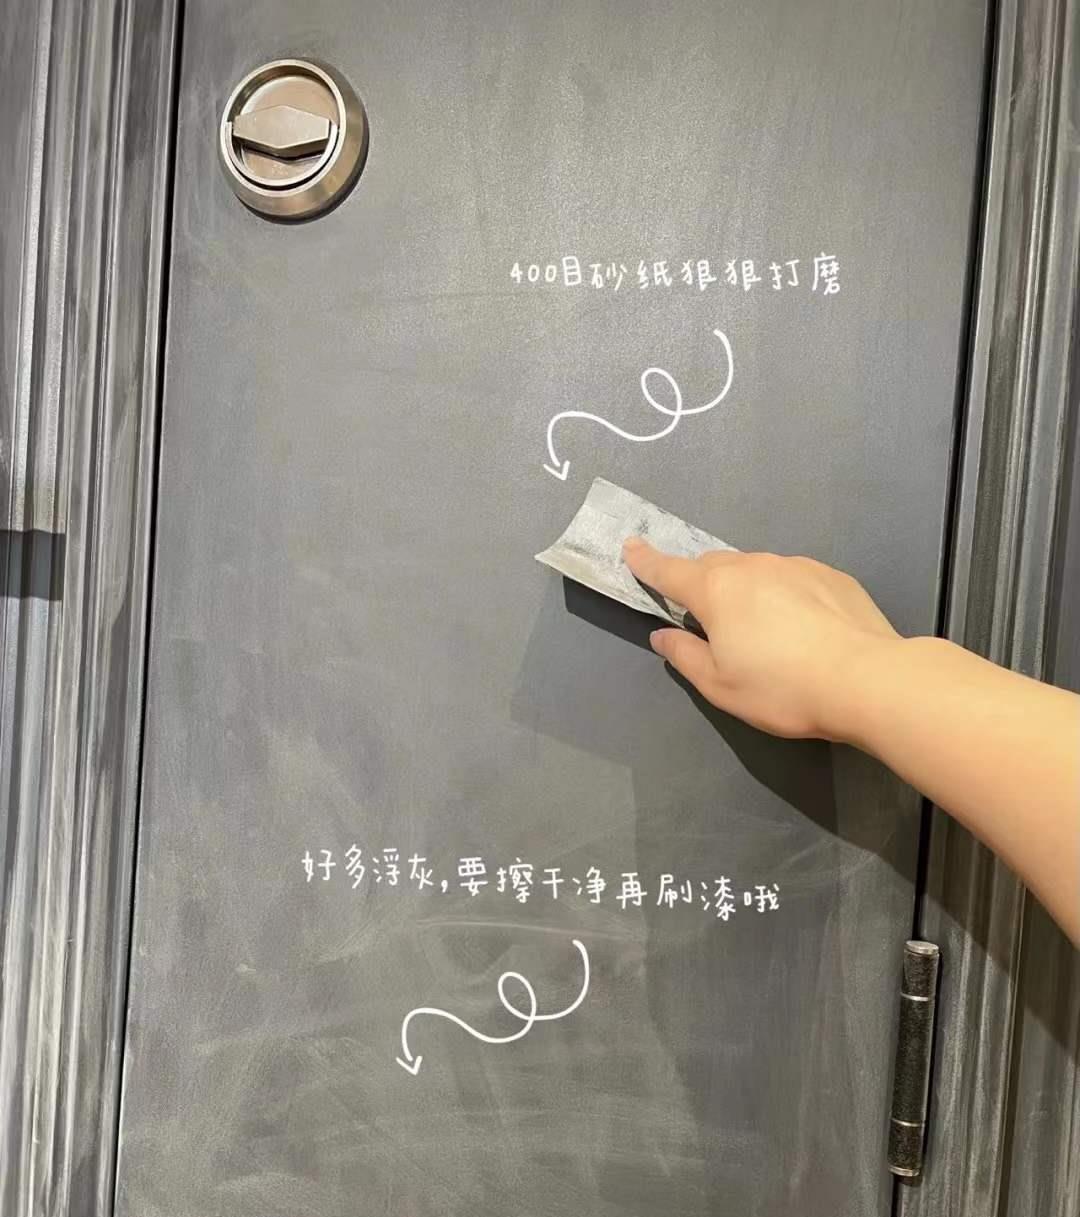 400目砂纸狠狠打磨
好多浮灰,要擦干净再刷漆哦